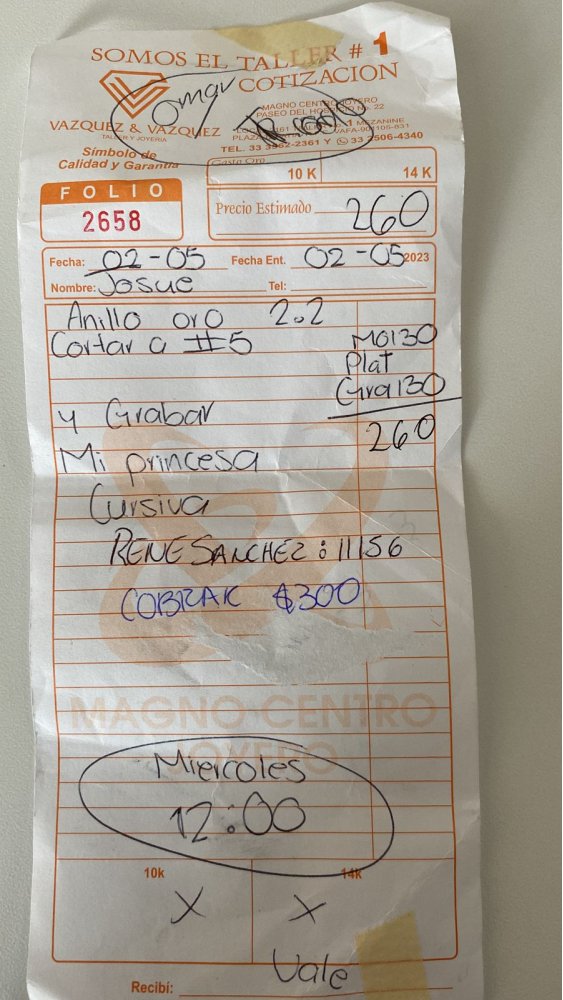 SOMOS EL TALLER # 1
COTIZACION
Omar
MAGNO CENTRO JOYERO
PASEO DEL HOSPICIO No. 22
MEZANINE
VAZQUEZ & VAZQUEZ
TALLER Y JOYERIA
TEL. 33 3562-2361 Y 33 2506-4340
Símbolo de
Calidad y Garantía
Gasto Oro
10 K 14 K
FOLIO
2658
Precio Estimado 260
Fecha: 02-05 Fecha Ent. 02-05 2023
Nombre: Josue Tel:
Anillo oro 2.2
Cortar a #5
MO130
Plat
Gra130
260
y Grabar
Mi princesa
Cursiva
RENE SANCHEZ : 11156
COBRAR $300
MAGNO CENTRO
JOYERO
Miercoles
12:00
10k 14k
X X
Vale
Recibí: